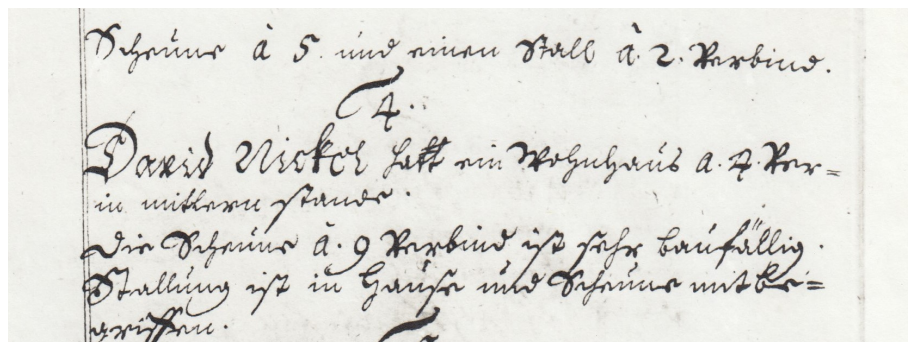 Scheune â 5. und einen Stall â. 2. Verbind.
4.
David Nickel hatt ein Wohnhaus a. 4. Ver=
in mittlern stande.
Die Scheune â. 9 Verbind ist sehr baufällig.
Stallung ist in Hause und Scheune mit be=
griffen.